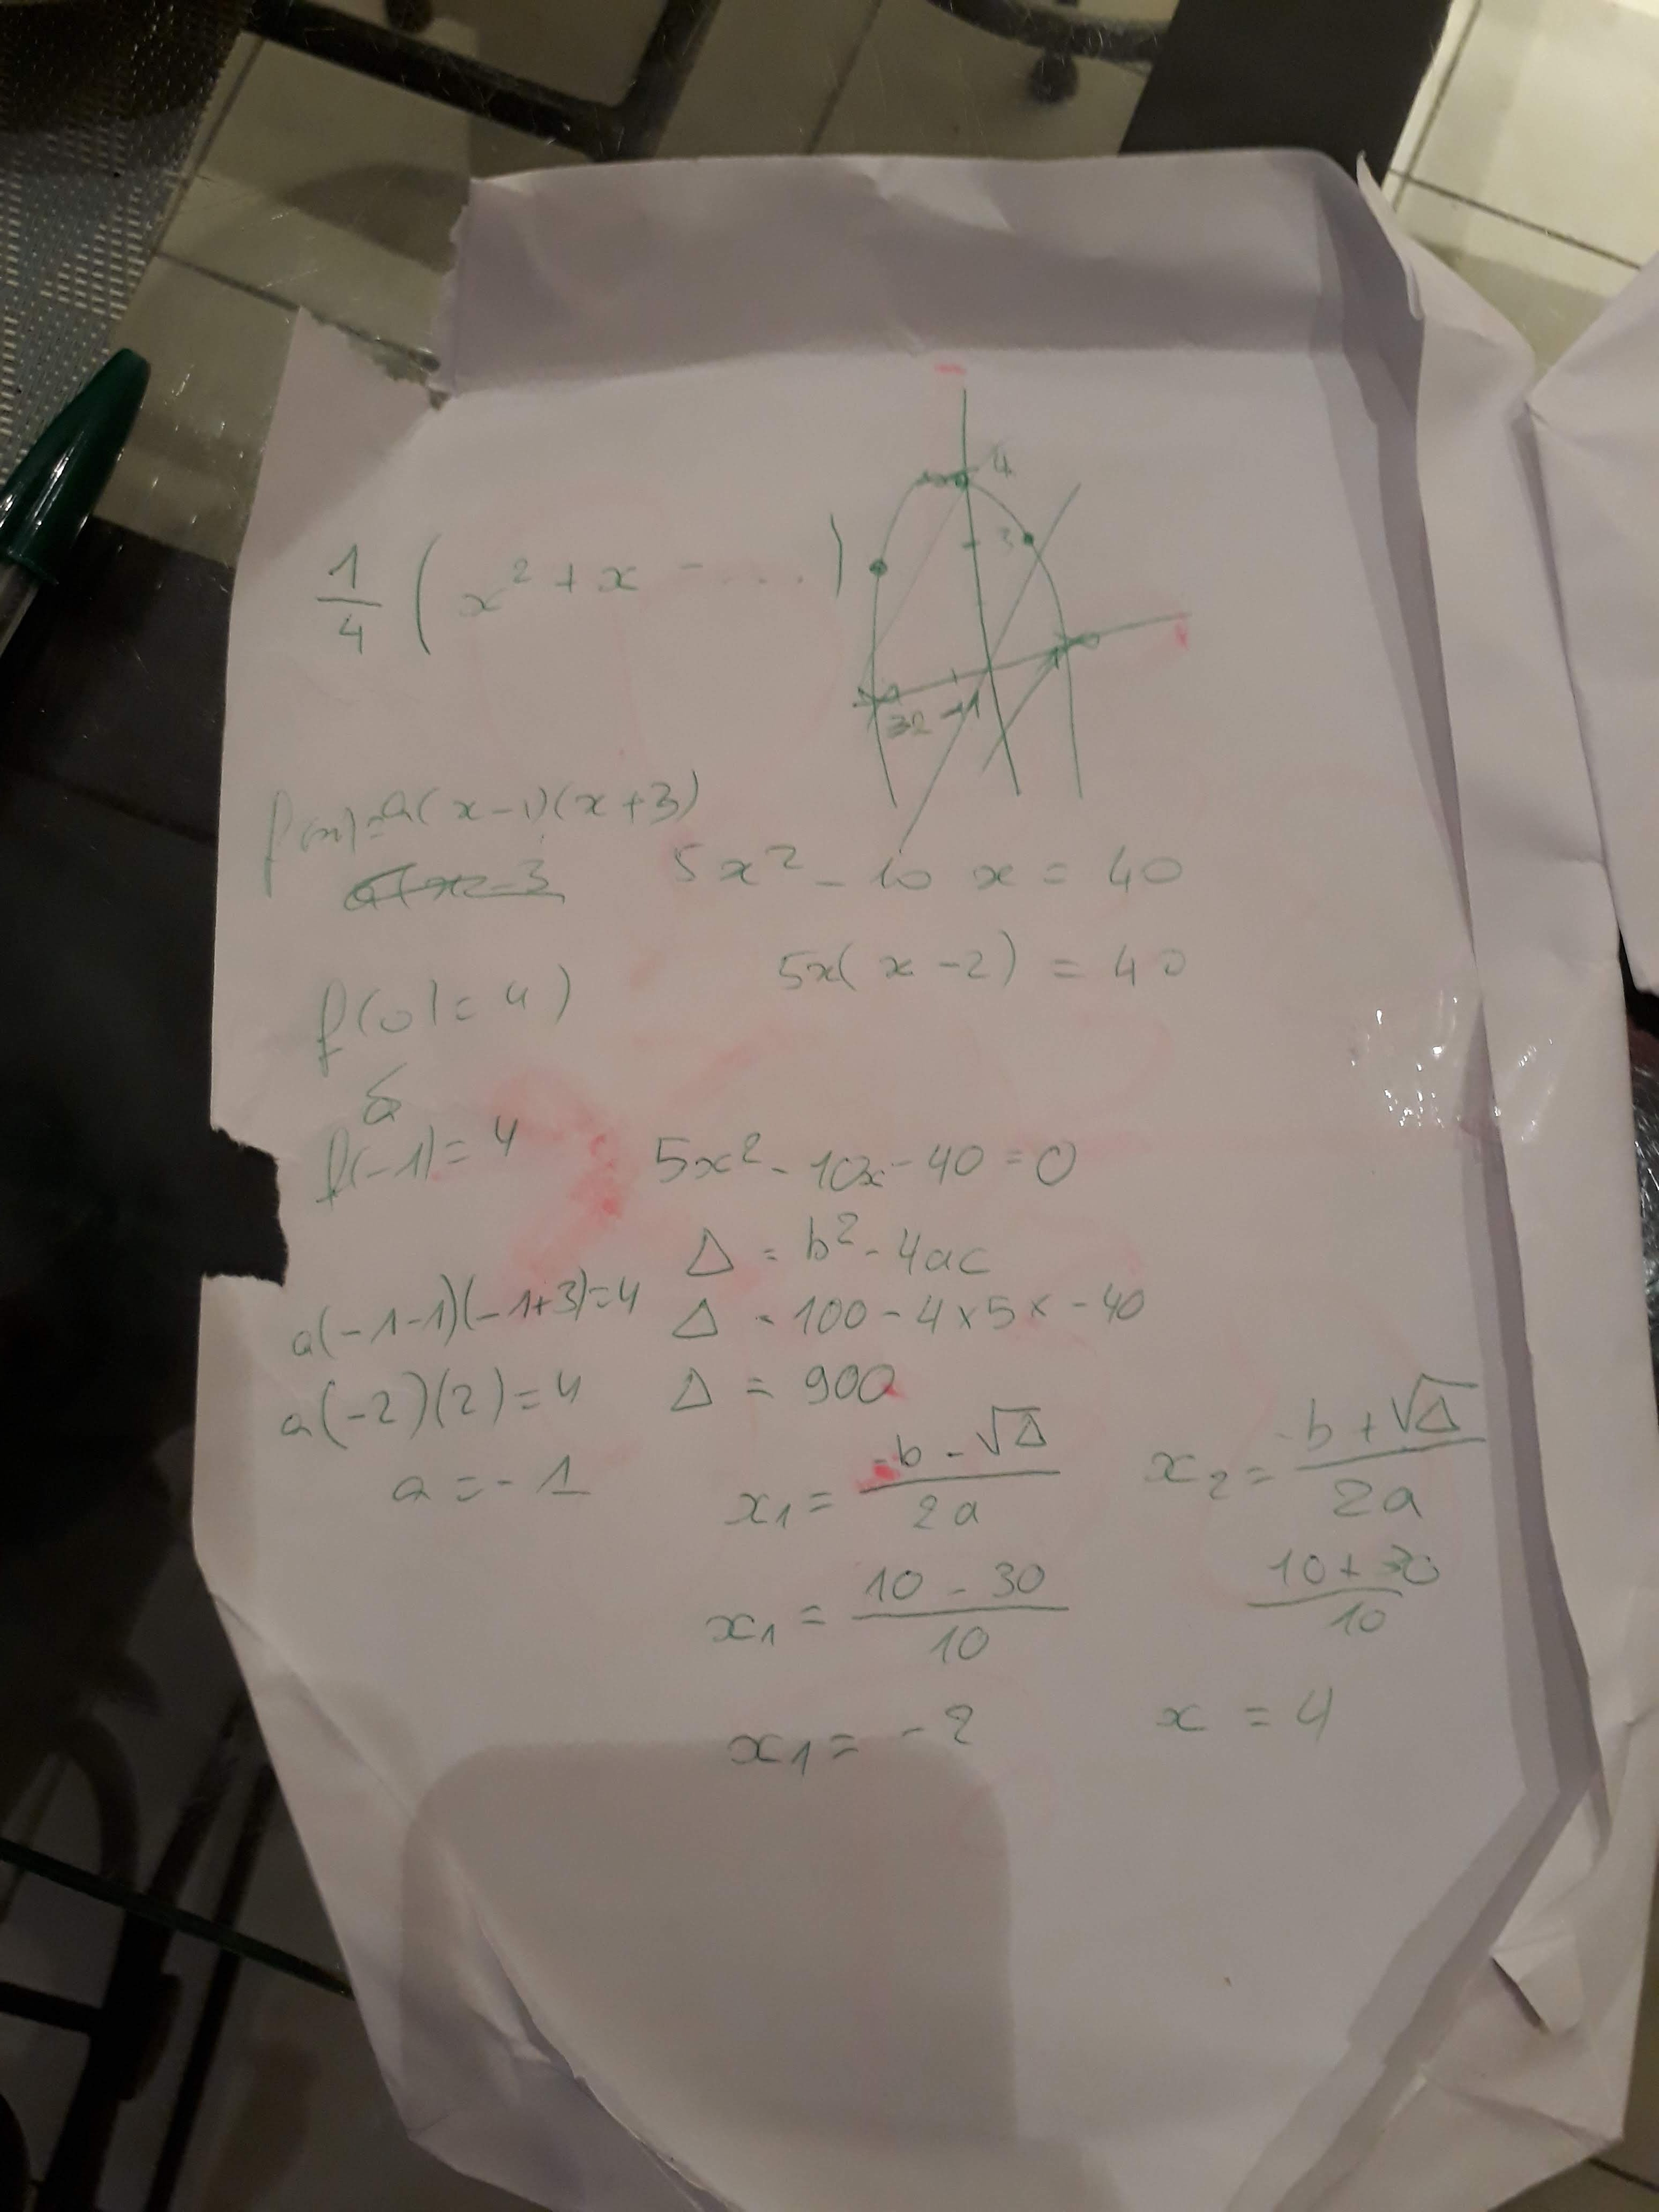 4
3
1/4 ( x² + x - .... )
32 -1
f(x)=a(x-1)(x+3)
a(x-3
5x² - 10 x = 40
5x( x - 2) = 40
f(0)=4)
a
f(-1)=4
5x² - 10x - 40 = 0
Δ = b² - 4ac
a(-1-1)(-1+3)=4
Δ = 100 - 4 x 5 x - 40
a(-2)(2)=4
Δ = 900
a = - 1
x₁ = -b - √Δ / 2a
x₂ = -b + √Δ / 2a
x₁ = 10 - 30 / 10
10 + 30 / 10
x₁ = - 2
x = 4